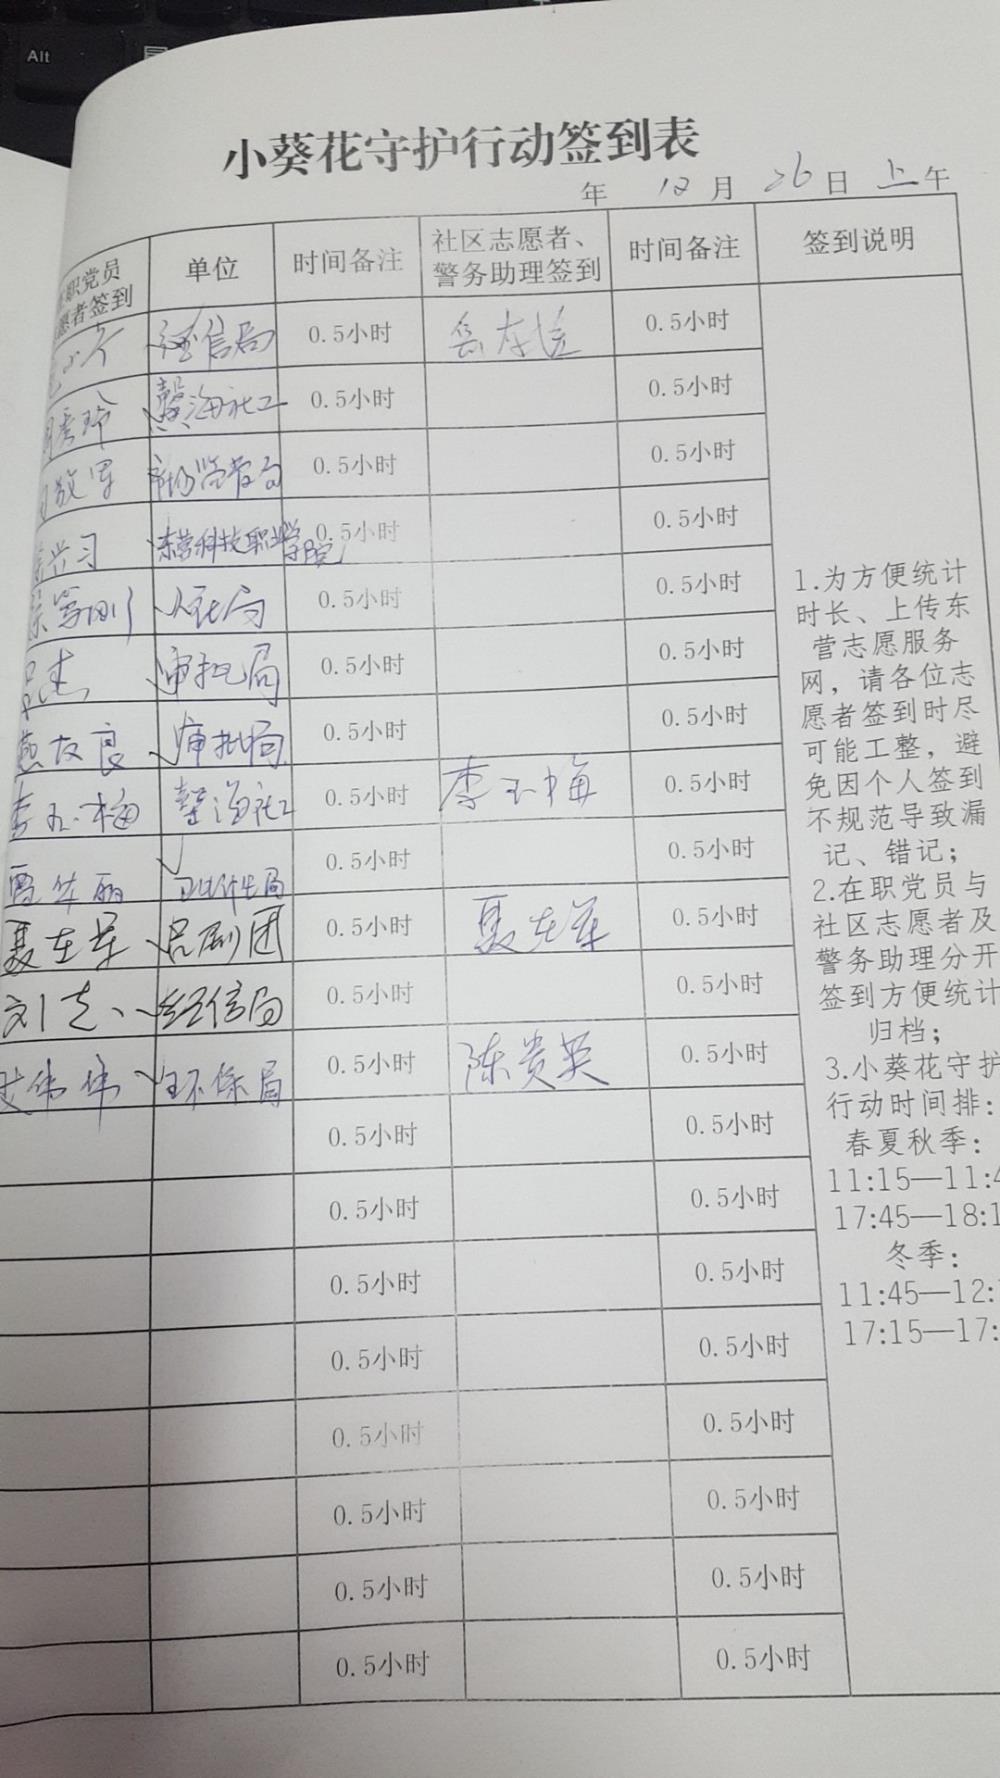 Alt
小葵花守护行动签到表
年 12 月 26 日 上午
职党员
愿者签到
单位
时间备注
社区志愿者、
警务助理签到
时间备注
签到说明
经信局 0.5小时 0.5小时
馨海社工 0.5小时 0.5小时
市场监管局 0.5小时 0.5小时
东营科技职业学院 0.5小时 0.5小时
人社局 0.5小时 0.5小时
审批局 0.5小时 0.5小时
燕友良 审批局 0.5小时 0.5小时
李玉梅 馨海社工 0.5小时 李玉梅 0.5小时
卫生计生局 0.5小时 0.5小时
聂在军 吕剧团 0.5小时 聂在军 0.5小时
经信局 0.5小时 0.5小时
伟伟 环保局 0.5小时 陈贵英 0.5小时
0.5小时 0.5小时
0.5小时 0.5小时
0.5小时 0.5小时
0.5小时 0.5小时
0.5小时 0.5小时
0.5小时 0.5小时
0.5小时 0.5小时
0.5小时 0.5小时
1.为方便统计
时长、上传东
营志愿服务
网，请各位志
愿者签到时尽
可能工整，避
免因个人签到
不规范导致漏
记、错记；
2.在职党员与
社区志愿者及
警务助理分开
签到方便统计
归档；
3.小葵花守护
行动时间排：
春夏秋季：
11:15—11:4
17:45—18:1
冬季：
11:45—12:
17:15—17: